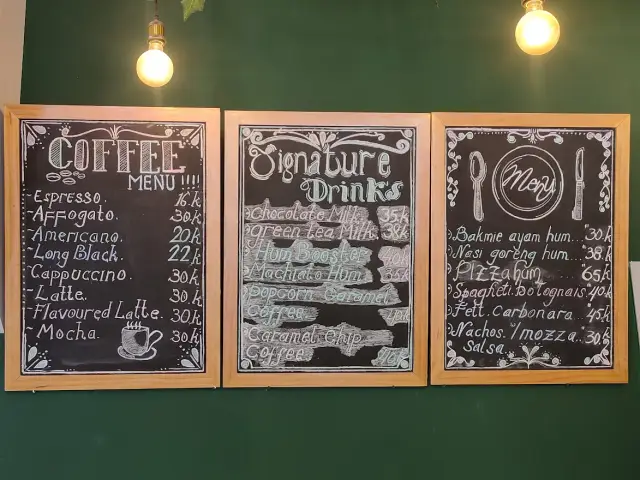 COFFEE
MENU !!!!
- Espresso. 16k
- Affogato. 30k
- Americano. 20k
- Long Black. 22k
- Cappuccino. 30k
- Latte. 30k
- Flavoured Latte. 30k
- Mocha. 30k
Signature
Drinks
Chocolate Milk 35k
green tea Milk 38k
Hum Booster
Machiato Hum 35k
Popcorn Caramel
Coffee
Caramel Chip
Coffee
Menu
Bakmie ayam hum... 30k
Nasi goreng hum... 38k
Pizza hum 65k
Spagheti Bolognais 40k
Fett. Carbonara. 45k
Nachos. /mozza.. 30k
Salsa.